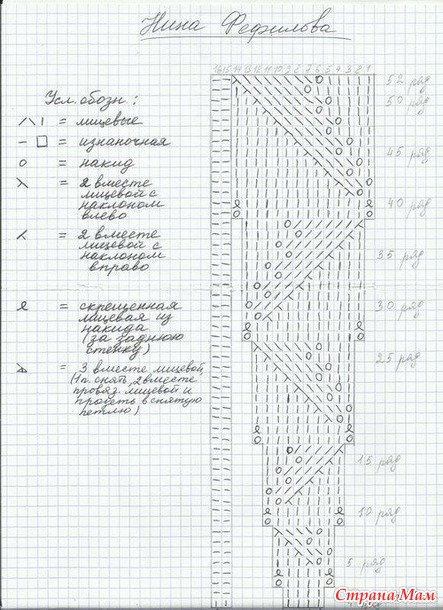 Нина Фефилова
16 15 14 13 12 11 10 9 8 7 6 5 4 3 2 1
52 ряд
50 ряд
45 ряд
40 ряд
35 ряд
30 ряд
25 ряд
15 ряд
10 ряд
5 ряд
Усл. обозн:
= лицевые
= изнаночная
= накид
= 2 вместе
лицевой с
наклоном
влево
= 2 вместе
лицевой с
наклоном
вправо
= скрещенная
лицевая из
накида
(за заднюю
стенку)
= 3 вместе лицевой
(1 п. снят, 2 вместе
провяз. лицевой и
продеть в снятую
петлю)
Страна Мам